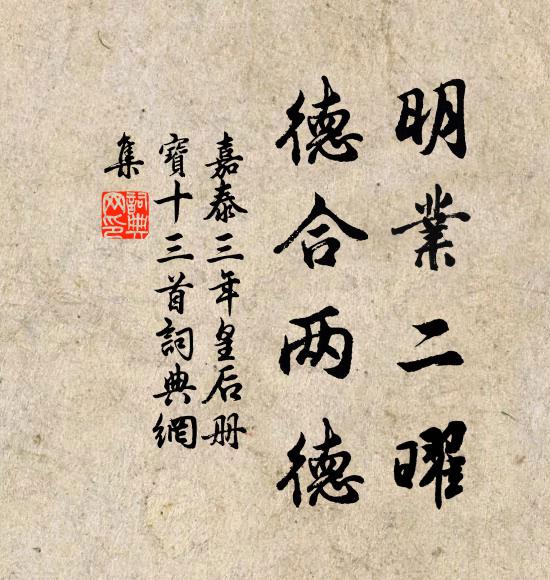 明業二曜
德合两德
嘉泰三年皇后册
寶十三首詞典網
集
詞典
网印